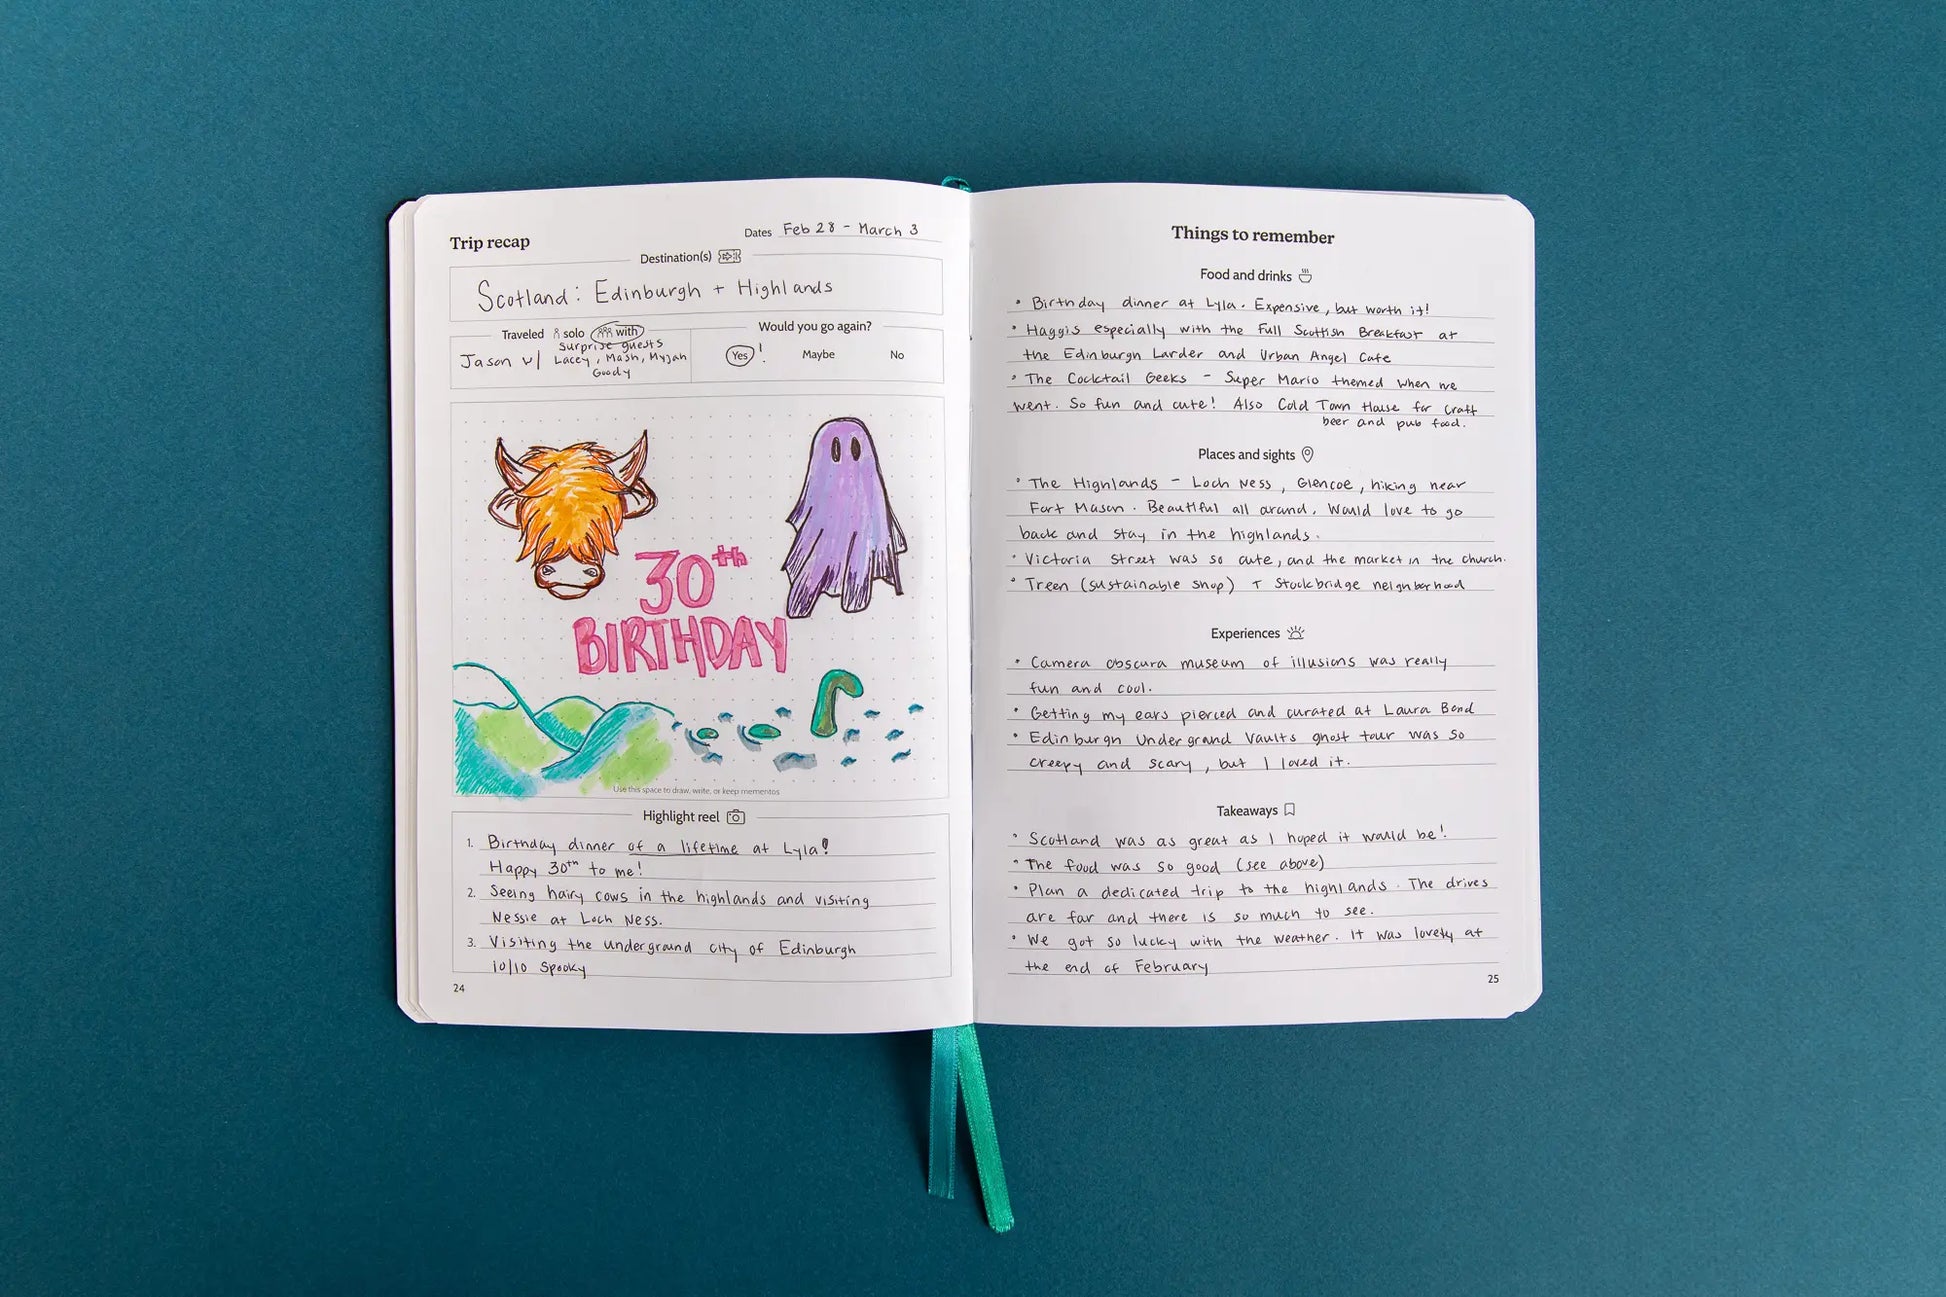 Trip recap
Dates Feb 28 - March 3
Destination(s)
Scotland: Edinburgh + Highlands
Traveled solo with
Surprise guests
Jason w/ Lacey, Mash, Myjah
Goody
Would you go again?
Yes! Maybe No
30th
BIRTHDAY
Use this space to draw, write, or keep mementos
Highlight reel
1. Birthday dinner of a lifetime at Lyla!
Happy 30th to me!
2. Seeing hairy cows in the highlands and visiting
Nessie at Loch Ness.
3. Visiting the underground city of Edinburgh
10/10 Spooky
24
Things to remember
Food and drinks
• Birthday dinner at Lyla. Expensive, but worth it!
• Haggis especially with the Full Scottish Breakfast at
the Edinburgh Larder and Urban Angel Cafe
• The Cocktail Geeks - Super Mario themed when we
went. So fun and cute! Also Cold Town House for craft
beer and pub food.
Places and sights
• The Highlands - Loch Ness, Glencoe, hiking near
Fort Mason. Beautiful all around. Would love to go
back and stay in the highlands.
• Victoria Street was so cute, and the market in the church.
• Treen (sustainable shop) + Stockbridge neighborhood
Experiences
• Camera obscura museum of illusions was really
fun and cool.
• Getting my ears pierced and curated at Laura Bond
• Edinburgh Underground Vaults ghost tour was so
creepy and scary, but I loved it.
Takeaways
• Scotland was as great as I hoped it would be!
• The food was so good (see above)
• Plan a dedicated trip to the highlands. The drives
are far and there is so much to see.
• We got so lucky with the weather. It was lovely at
the end of February
25